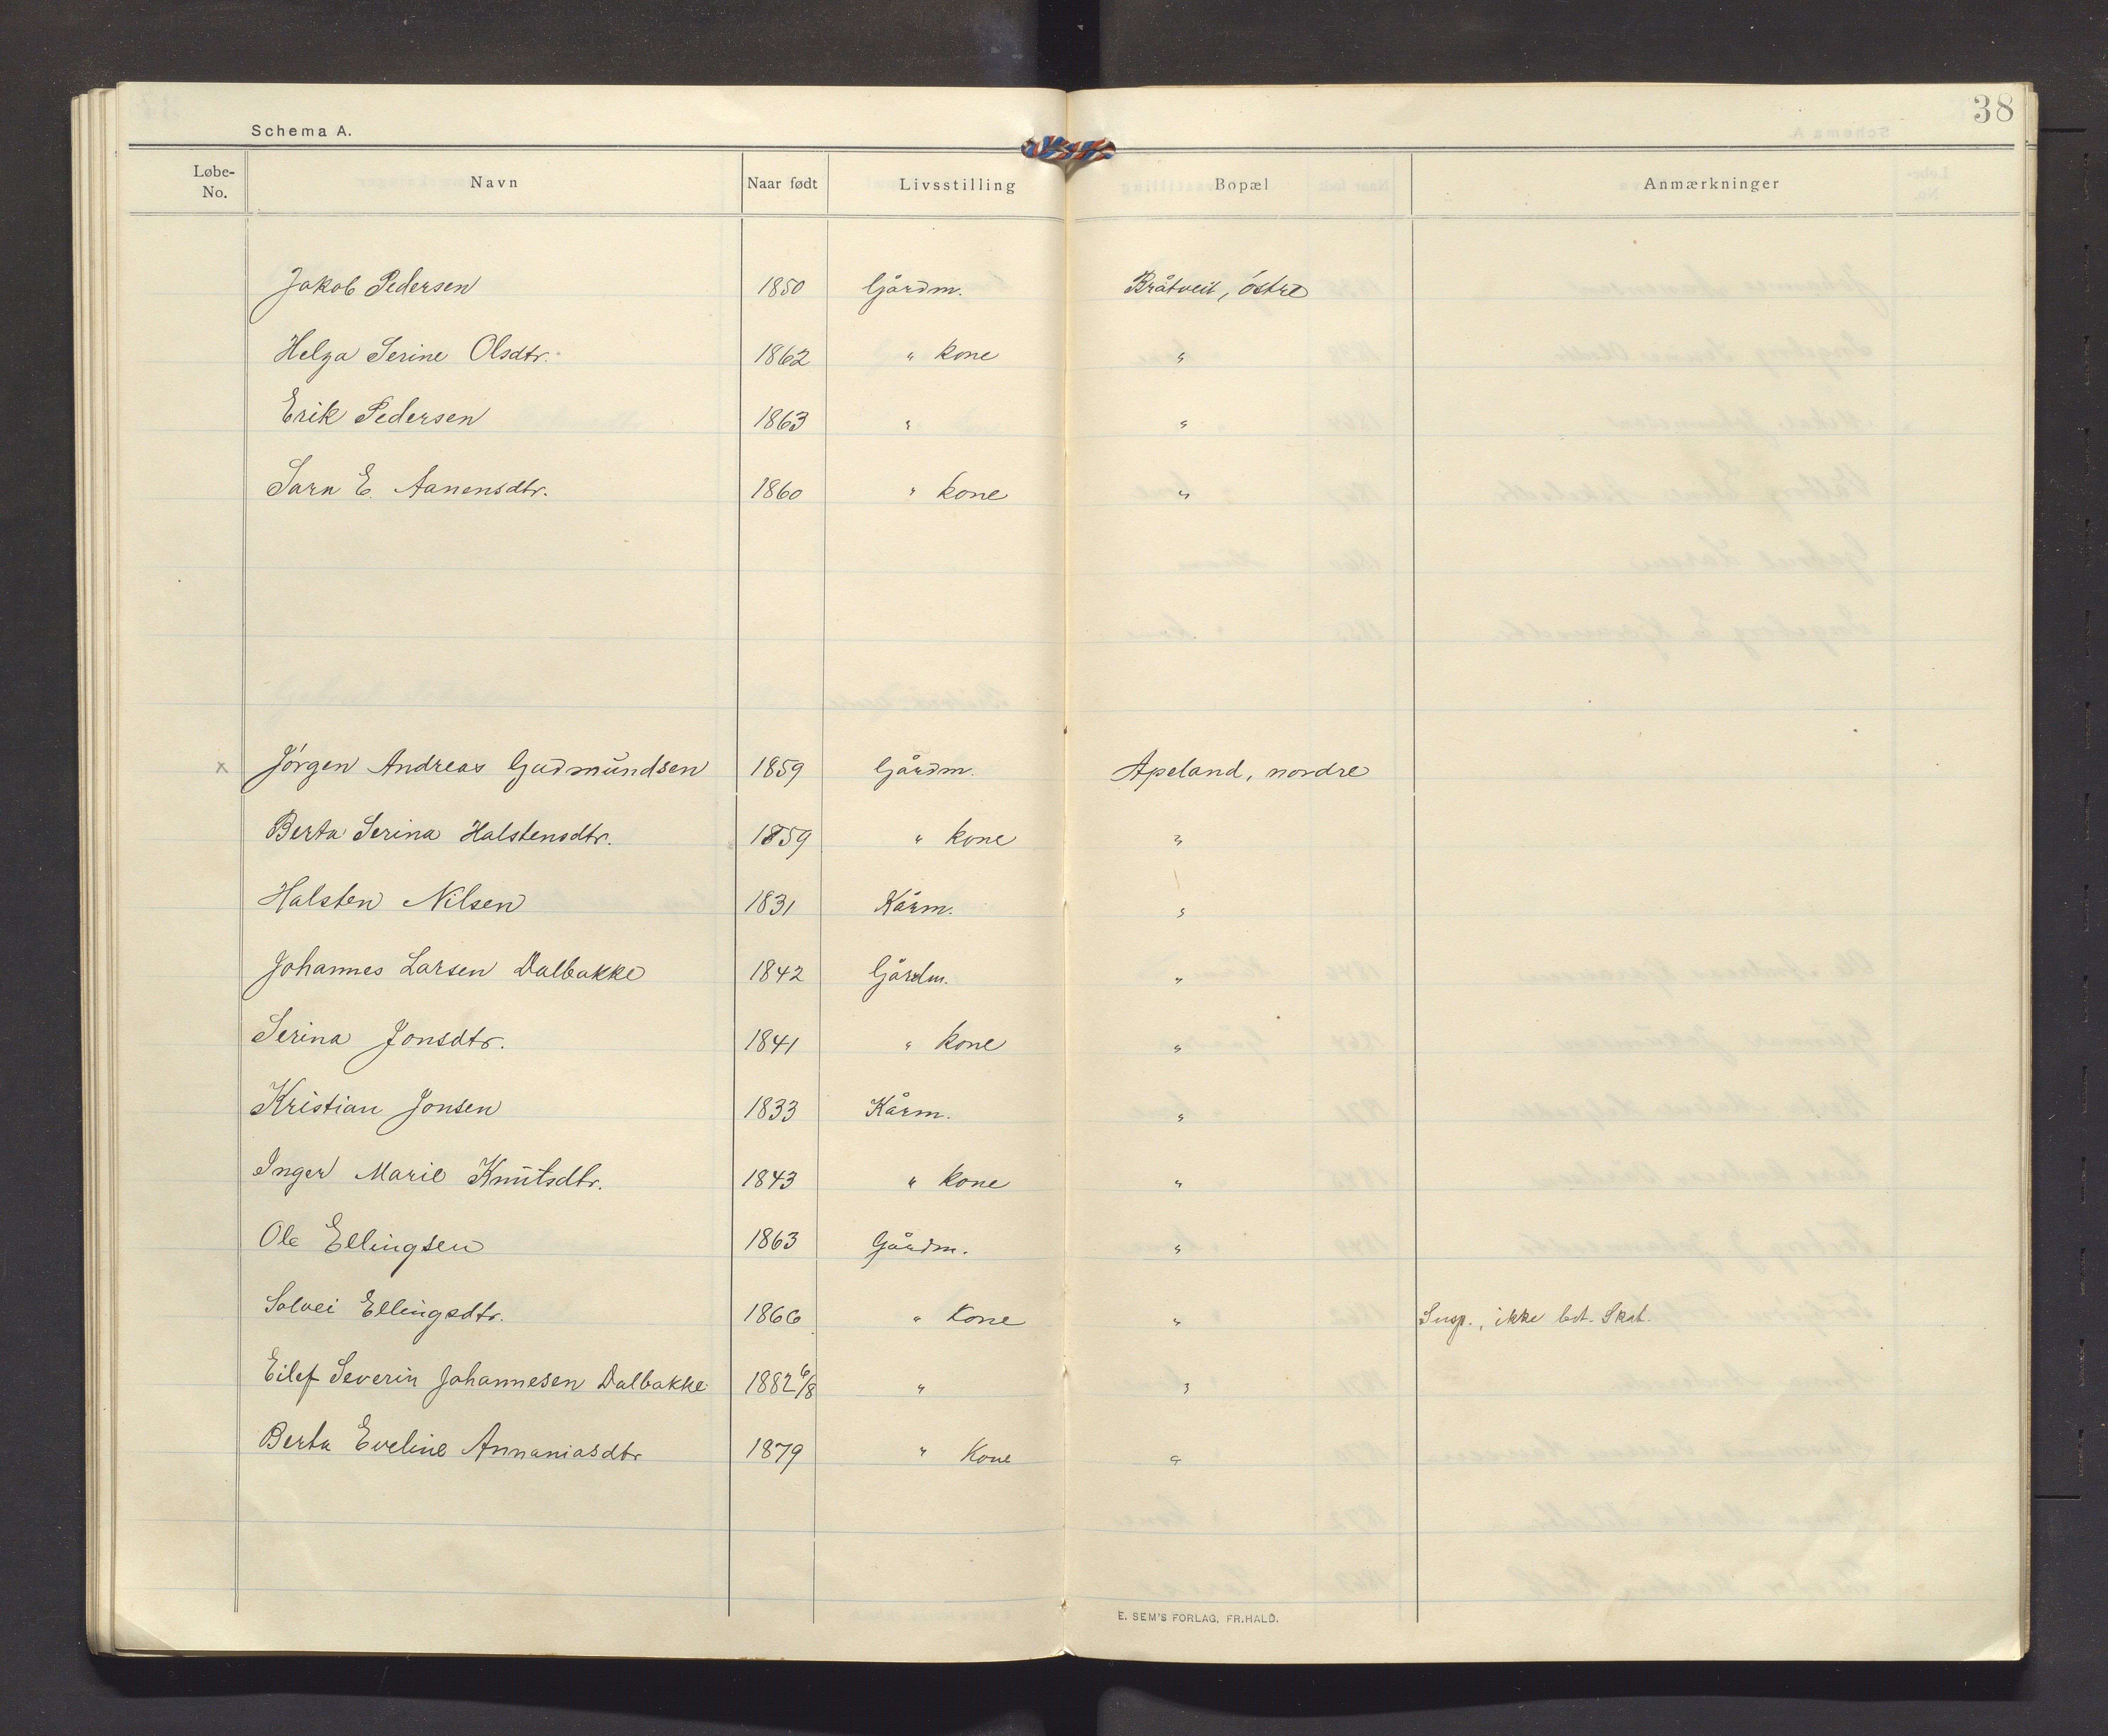 38
Schema A.
Løbe-No. Navn Naar født Livsstilling Bopæl Anmærkninger
Jakob Pedersen 1850 Gårdm. Bråtveit, østre
Helga Serine Olsdtr. 1862 " kone "
Erik Pedersen 1863 " "
Sara E. Aanensdtr. 1860 " kone "
x Jørgen Andreas Gudmundsen 1859 Gårdm. Apeland, nordre
Berta Serina Halstensdtr. 1859 " kone "
Halsten Nilsen 1831 Kårm. "
Johannes Larsen Dalbakke 1842 Gårdm. "
Serina Jonsdtr. 1841 " kone "
Kristian Jonsen 1833 Kårm. "
Inger Marie Knutsdtr. 1843 " kone "
Ole Ellingsen 1863 Gårdm. "
Solvei Ellingsdtr. 1866 " Kone " Susp., ikke bet. Skat.
Eilef Severin Johannesen Dalbakke 1882 6/8 " "
Berta Eveline Annaniasdtr 1879 " Kone "
E. SEM'S FORLAG, FR.HALD.